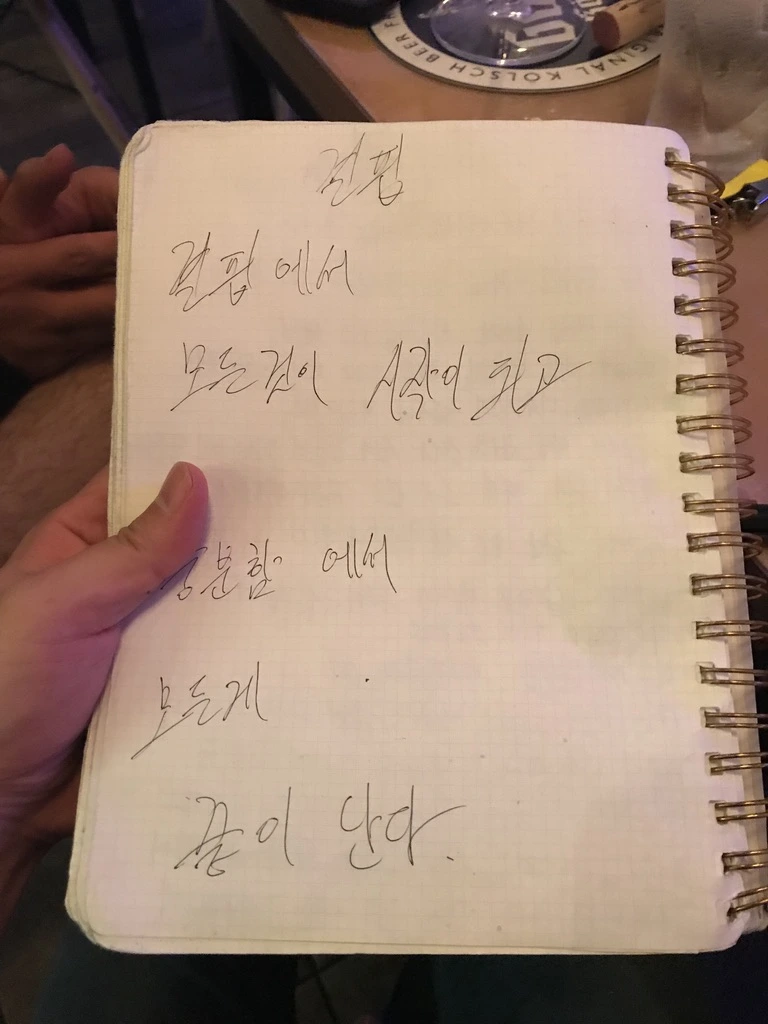 ORIGINAL KÖLSCH BEER
결핍
결핍에서
모든것이 시작이 되고
충분함에서
모든게
끝이 난다.